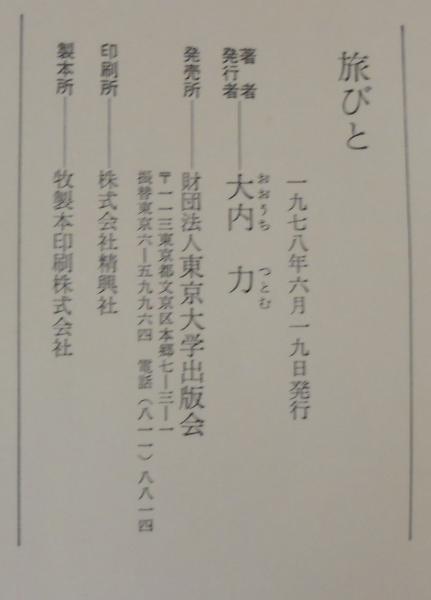 旅びと
一九七八年六月一九日発行
著者
発行者――大内 力
おおうち つとむ
発売所――財団法人東京大学出版会
〒一一三東京都文京区本郷七―三―一
振替東京六―五九九六四 電話(八一一)八八一四
印刷所――株式会社精興社
製本所――牧製本印刷株式会社